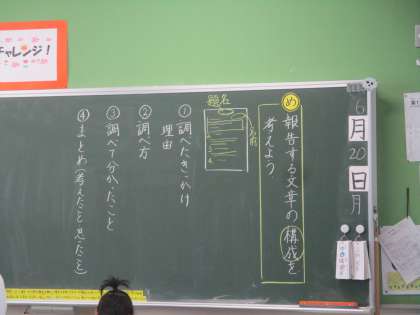 6
月
20
日
月
め 報告する文章の構成を
考えよう
題名
名前
① 調べたきっかけ
理由
② 調べ方
③ 調べて分かったこと
④ まとめ(考えたこと・思ったこと)
チャレンジ!